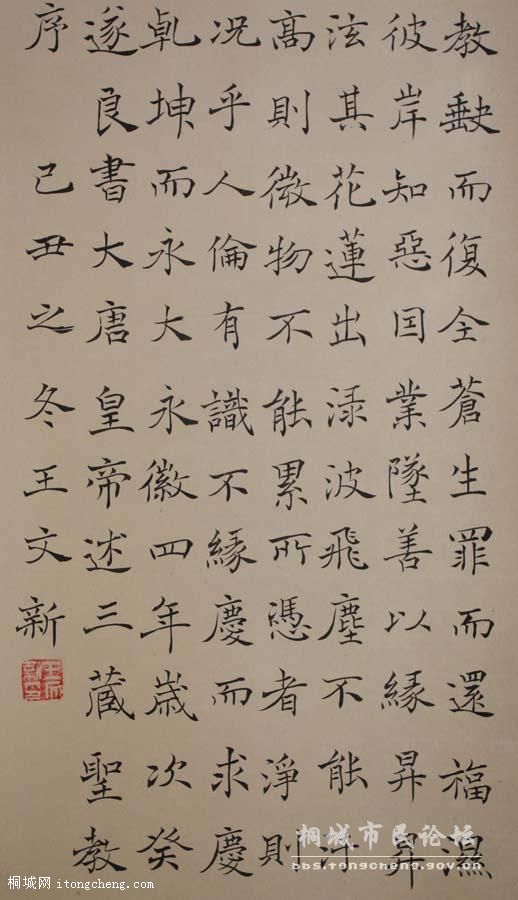 教缺而復全蒼生罪而還福濕
彼岸知惡囙業墜善以緣昇昇
泫其花蓮出渌波飛塵不能汙
高則微物不能累所憑者淨則
况乎人倫有識不緣慶而求慶
乹坤而永大永徽四年歲次癸
遂良書大唐皇帝述三藏聖教
序 己丑之冬王文新
桐城市民论坛
bbs.tongcheng.gov.cn
桐城网 itongcheng.com